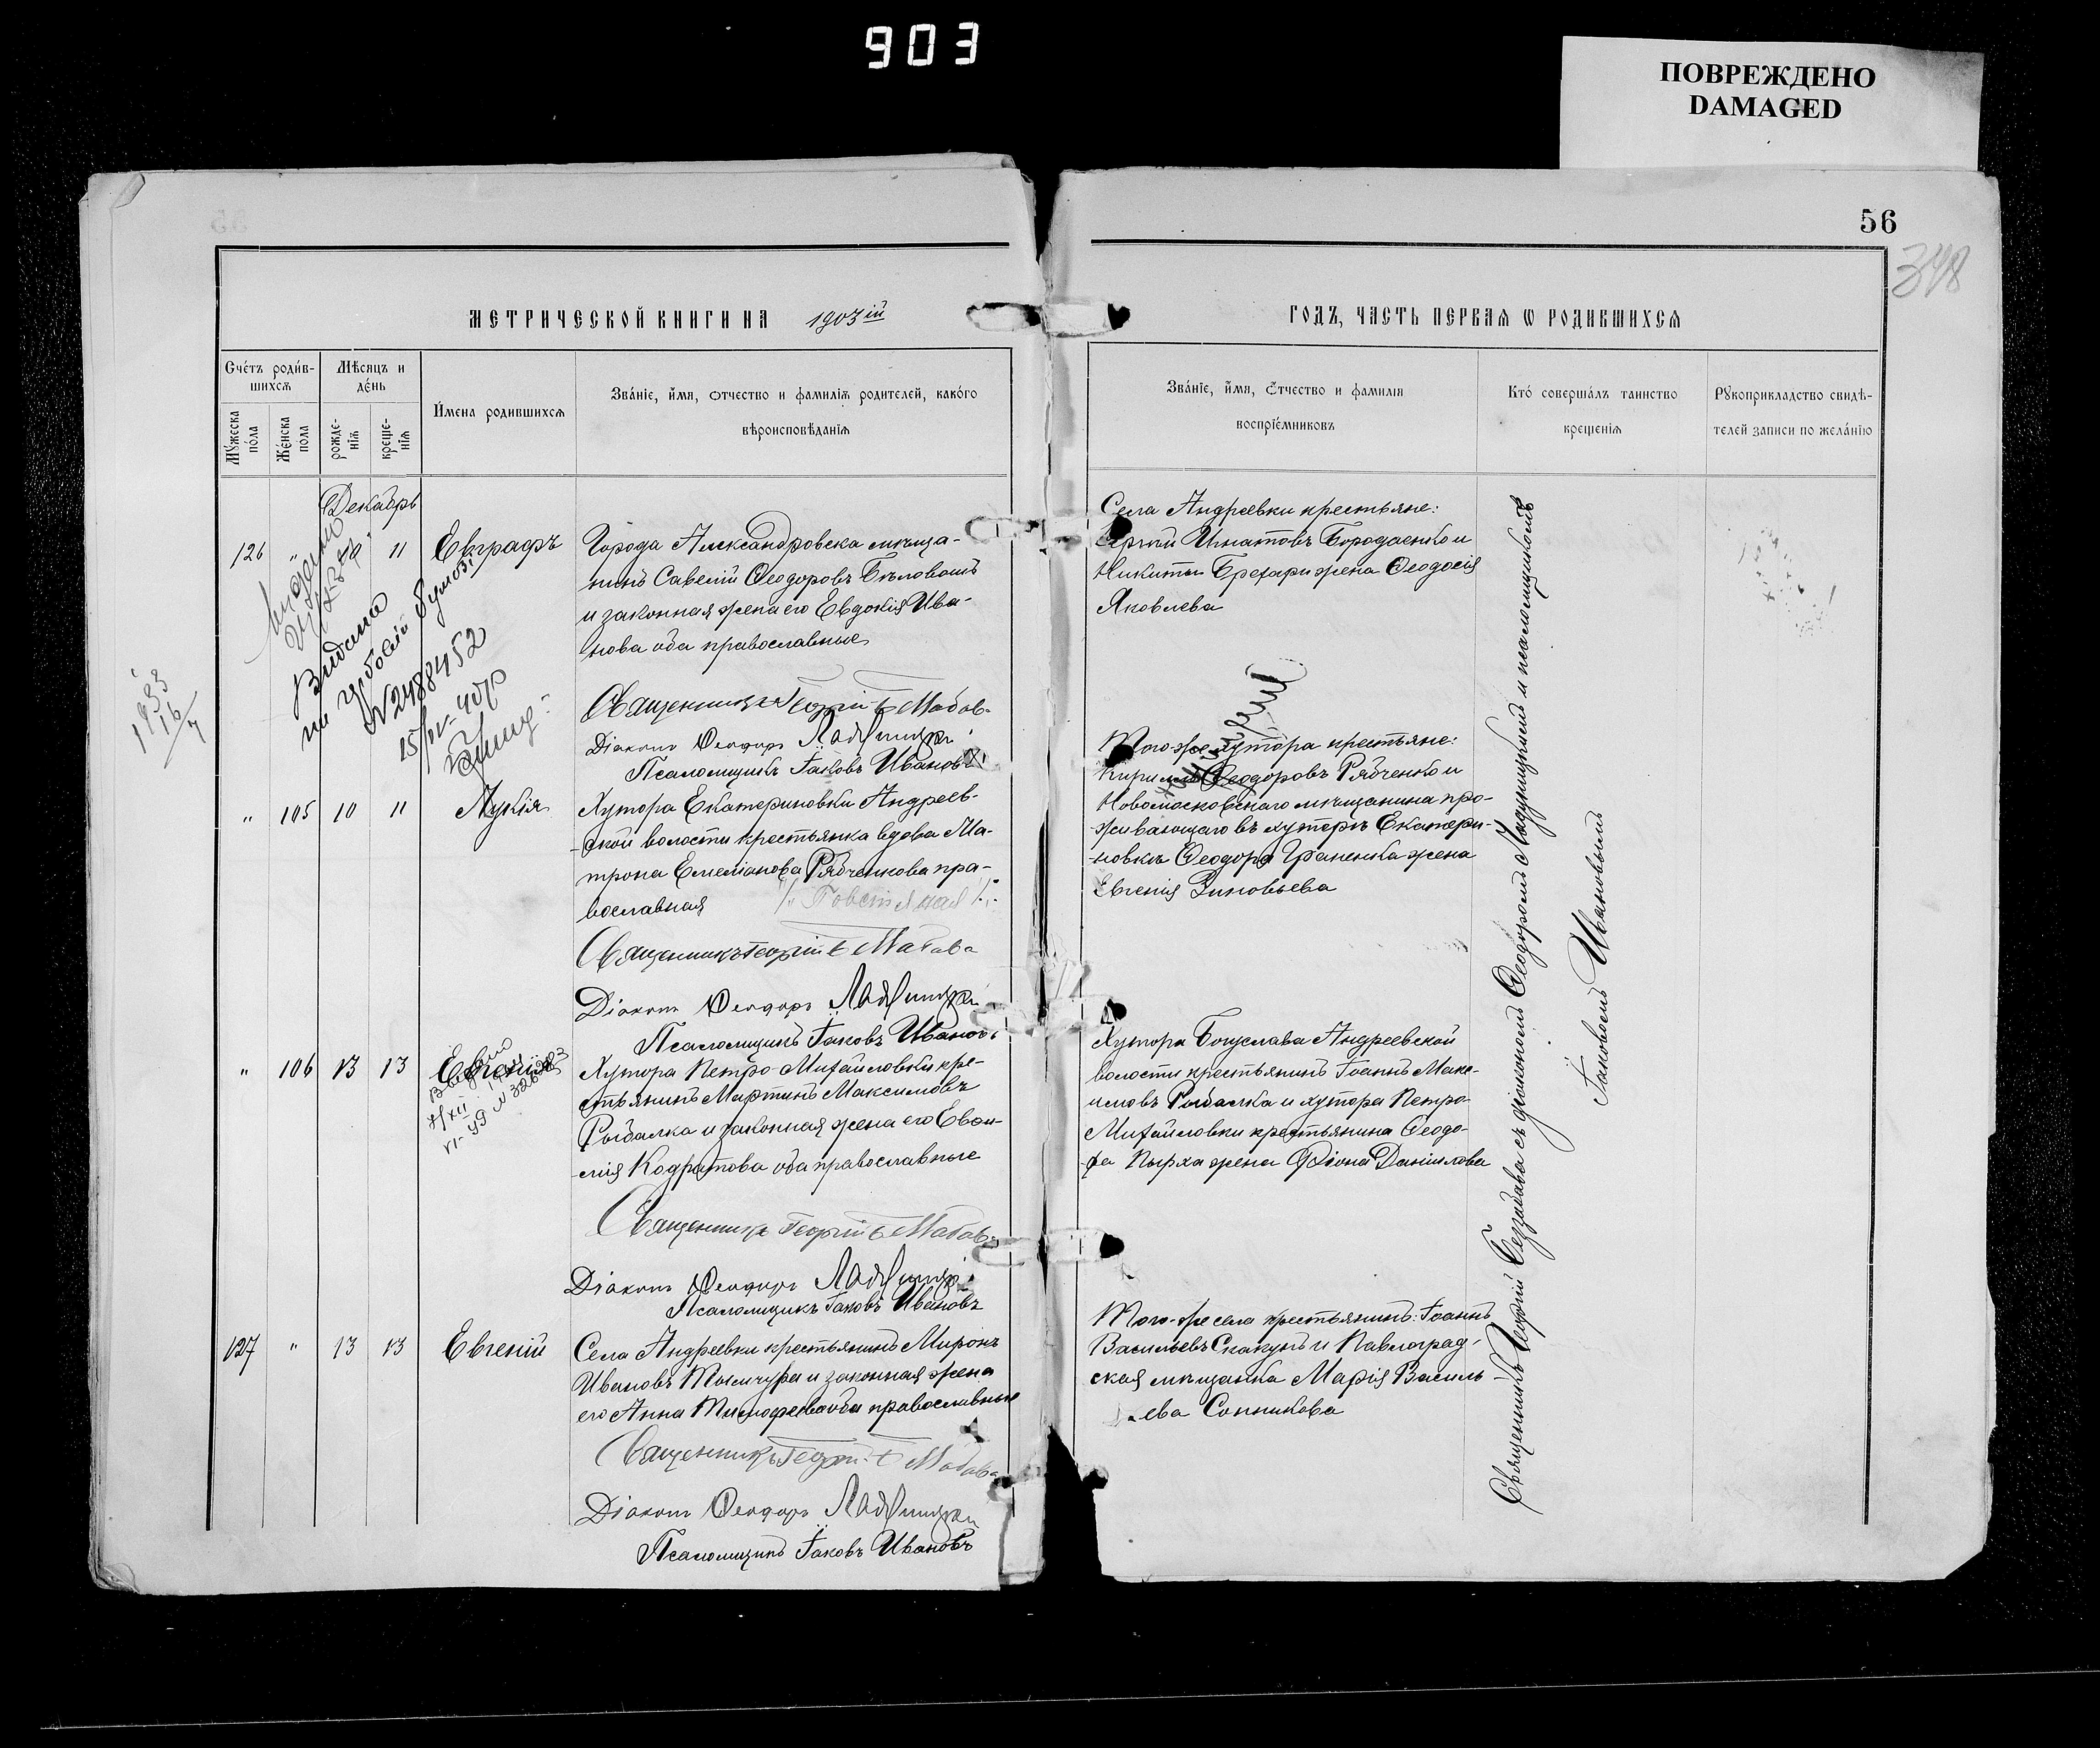 903
ПОВРЕЖДЕНО
DAMAGED
56
348
МЕТРИЧЕСКОЙ КНИГИ НА 1903 ій
ГОДЪ, ЧАСТЬ ПЕРВАЯ Ѡ РОДИВШИХСЯ
Счетъ родив-
шихся
Мѣсяцъ и
день
Мужеска
пола
Женска
пола
рожде-
нія
креще-
нія
Имена родившихся
Званіе, имя, отчество и фамилія родителей, какого
вѣроисповѣданія
Званіе, имя, отчество и фамилія
воспріемниковъ
Кто совершалъ таинство
крещенія
Рукоприкладство свидѣ-
телей записи по желанію
Декабрь
126 " 11 Евграфъ
Города Александровска мѣща-
нинъ Савелій Ѳеодоровъ Бѣловолъ
и законная жена его Евдокія Ива-
нова оба православные
Священникъ Георгій
Діаконъ Ѳеодоръ
Псаломщикъ Іаковъ Ивановъ
Села Андреевки крестьяне:
Игнатовъ Бородаенко и
Никиты жена Ѳеодосія
Яковлева
Видана
N 2488452
1933
16/7
" 105 10 11 Лукія
Хутора Екатериновки Андреев-
ской волости крестьянка вдова Ма-
трона Емеліанова Рябченкова пра-
вославная
Священникъ Георгій
Діаконъ Ѳеодоръ
Псаломщикъ Іаковъ Ивановъ
Того-же хутора крестьяне:
Кириллъ Ѳеодоровъ Рябченко и
Новомосковскаго мѣщанина про-
живающаго въ хуторѣ Екатери-
новкѣ Ѳеодора жена
Евгенія Зиновьева
" 106 13 13 Евгенія
Хутора Петро-Михайловки кре-
стьянинъ Мартинъ Максимовъ
Рыбалка и законная жена его Евфи-
мія Кодратова оба православные
Священникъ Георгій
Діаконъ Ѳеодоръ
Псаломщикъ Іаковъ Ивановъ
Хутора Богуслава Андреевской
волости крестьянинъ Іоаннъ Макс-
имовъ Рыбалка и хутора Петро-
Михайловки крестьянина Ѳеодо-
ра жена Даніилова
127 " 13 13 Евгеній
Села Андреевки крестьянинъ Миронъ
Ивановъ и законная жена
его Анна Тимофеева оба православные
Священникъ Георгій
Діаконъ Ѳеодоръ
Псаломщикъ Іаковъ Ивановъ
Того-же села крестьянинъ: Іоаннъ
Васильевъ Скакунъ и Павлоград-
ская мѣщанка Марія Василь-
ева Сотникова
Священникъ Георгій съ діакономъ Ѳеодоромъ и псаломщикомъ
Іаковомъ Ивановымъ